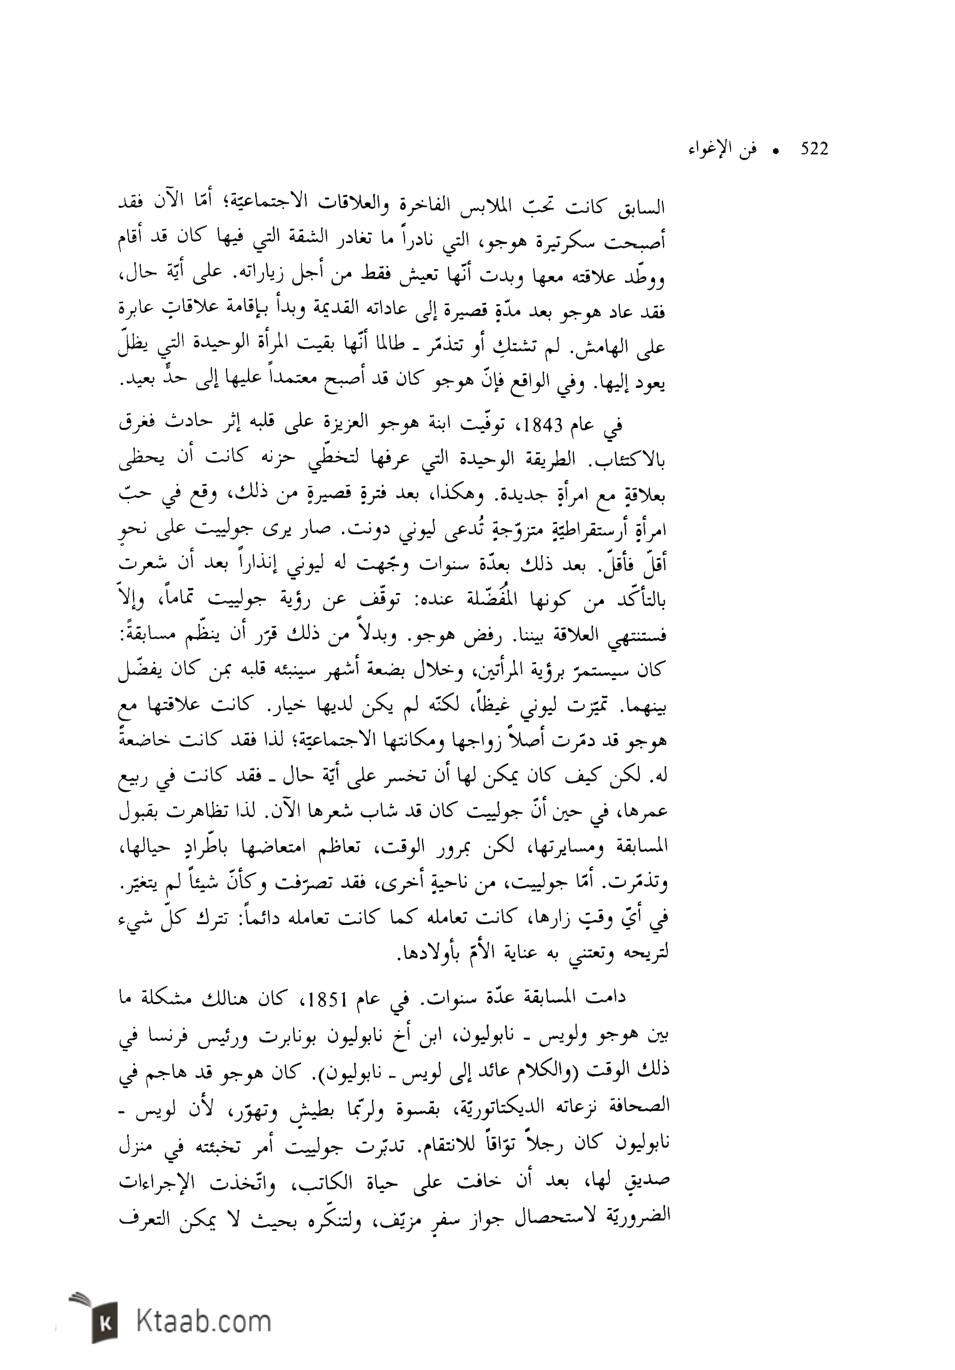 522 • فن الإغواء
السابق كانت تحبّ الملابس الفاخرة والعلاقات الاجتماعيّة؛ أمّا الآن فقد
أصبحت سكرتيرة هوجو، التي نادراً ما تغادر الشقة التي فيها كان قد أقام
ووطّد علاقته معها وبدت أنّها تعيش فقط من أجل زياراته. على أيّة حال،
فقد عاد هوجو بعد مدّةٍ قصيرة إلى عاداته القديمة وبدأ بإقامة علاقاتٍ عابرة
على الهامش. لم تشتكِ أو تتذمّر ـ طالما أنّها بقيت المرأة الوحيدة التي يظلّ
يعود إليها. وفي الواقع فإنّ هوجو كان قد أصبح معتمداً عليها إلى حدٍّ بعيد.
في عام 1843، توفّيت ابنة هوجو العزيزة على قلبه إثر حادث فغرق
بالاكتئاب. الطريقة الوحيدة التي عرفها لتخطّي حزنه كانت أن يحظى
بعلاقةٍ مع امرأةٍ جديدة. وهكذا، بعد فترةٍ قصيرةٍ من ذلك، وقع في حبّ
امرأةٍ أرستقراطيّةٍ متزوّجةٍ تُدعى ليوني دونت. صار يرى جولييت على نحوٍ
أقلّ فأقلّ. بعد ذلك بعدّة سنوات وجّهت له ليوني إنذاراً بعد أن شعرت
بالتأكّد من كونها المُفضّلة عنده: توقّف عن رؤية جولييت تماماً، وإلاّ
فستنتهي العلاقة بيننا. رفض هوجو. وبدلاً من ذلك قرّر أن ينظّم مسابقةً:
كان سيستمرّ برؤية المرأتين، وخلال بضعة أشهر سينبئه قلبه بمن كان يفضّل
بينهما. تميّزت ليوني غيظاً، لكنّه لم يكن لديها خيار. كانت علاقتها مع
هوجو قد دمّرت أصلاً زواجها ومكانتها الاجتماعيّة؛ لذا فقد كانت خاضعةً
له. لكن كيف كان يمكن لها أن تخسر على أيّة حال ـ فقد كانت في ربيع
عمرها، في حين أنّ جولييت كان قد شاب شعرها الآن. لذا تظاهرت بقبول
المسابقة ومسايرتها، لكن بمرور الوقت، تعاظم امتعاضها باطّرادٍ حيالها،
وتذمّرت. أمّا جولييت، من ناحيةٍ أخرى، فقد تصرّفت وكأنّ شيئاً لم يتغيّر.
في أيّ وقتٍ زارها، كانت تعامله كما كانت تعامله دائماً: تترك كلّ شيء
لتريحه وتعتني به عناية الأمّ بأولادها.
دامت المسابقة عدّة سنوات. في عام 1851، كان هنالك مشكلة ما
بين هوجو ولويس ـ نابوليون، ابن أخ نابوليون بونابرت ورئيس فرنسا في
ذلك الوقت (والكلام عائد إلى لويس ـ نابوليون). كان هوجو قد هاجم في
الصحافة نزعاته الديكتاتوريّة، بقسوة ولربّما بطيشٍ وتهوّر، لأن لويس ـ
نابوليون كان رجلاً توّاقاً للانتقام. تدبّرت جولييت أمر تخبئته في منزل
صديقٍ لها، بعد أن خافت على حياة الكاتب، واتّخذت الإجراءات
الضروريّة لاستحصال جواز سفرٍ مزيّف، ولتنكّره بحيث لا يمكن التعرف
K Ktaab.com